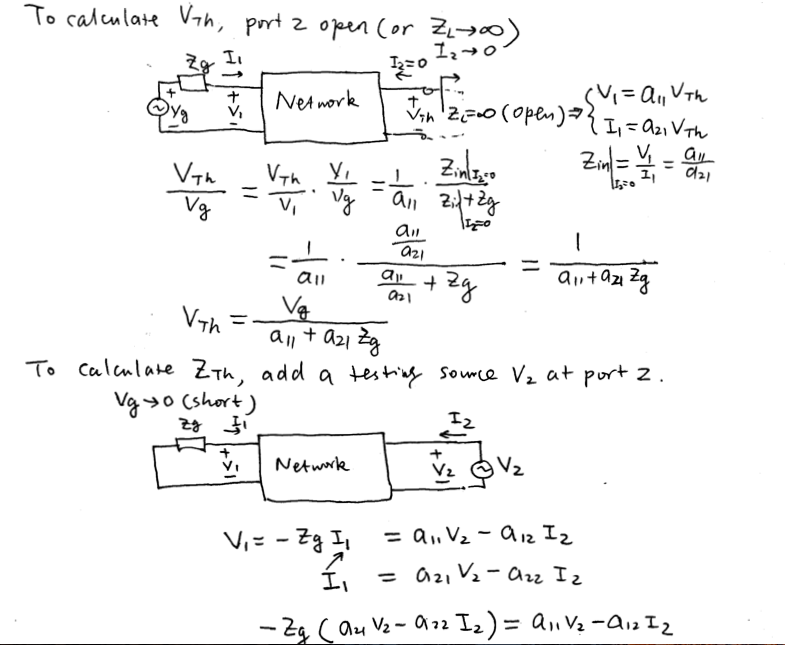 To calculate V_Th, port 2 open (or Z_L→∞)
I_2→0
Zg I_1 I_2=0
+ Vg − + V_1 − Network + V_Th − Z_L=∞ (open) ⇒ { V_1 = a_11 V_Th
I_1 = a_21 V_Th
Zin|_{I_2=0} = V_1/I_1 = a_11/a_21
V_Th/Vg = V_Th/V_1 · V_1/Vg = 1/a_11 · Zin|_{I_2=0}/(Zin|_{I_2=0} + Zg)
= 1/a_11 · (a_11/a_21)/(a_11/a_21 + Zg) = 1/(a_11 + a_21 Zg)
V_Th = Vg/(a_11 + a_21 Zg)
To calculate Z_Th, add a testing source V_2 at port 2.
Vg→0 (short)
Zg I_1 I_2
+ V_1 − Network + V_2 − V_2
V_1 = − Zg I_1 = a_11 V_2 − a_12 I_2
I_1 = a_21 V_2 − a_22 I_2
− Zg (a_21 V_2 − a_22 I_2) = a_11 V_2 − a_12 I_2